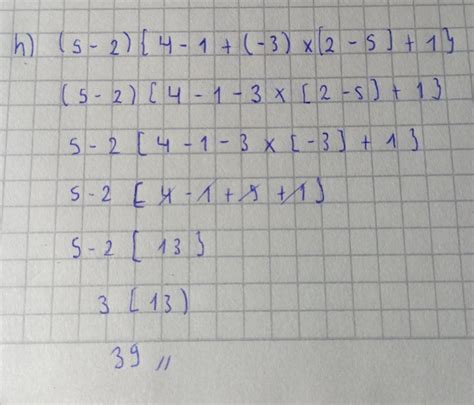 h) (5-2){4-1+(-3)x[2-5]+1}
(5-2)[4-1-3x[2-5]+1}
5-2[4-1-3x[-3]+1}
5-2[4-1+9+1}
5-2[13}
3[13)
39 //